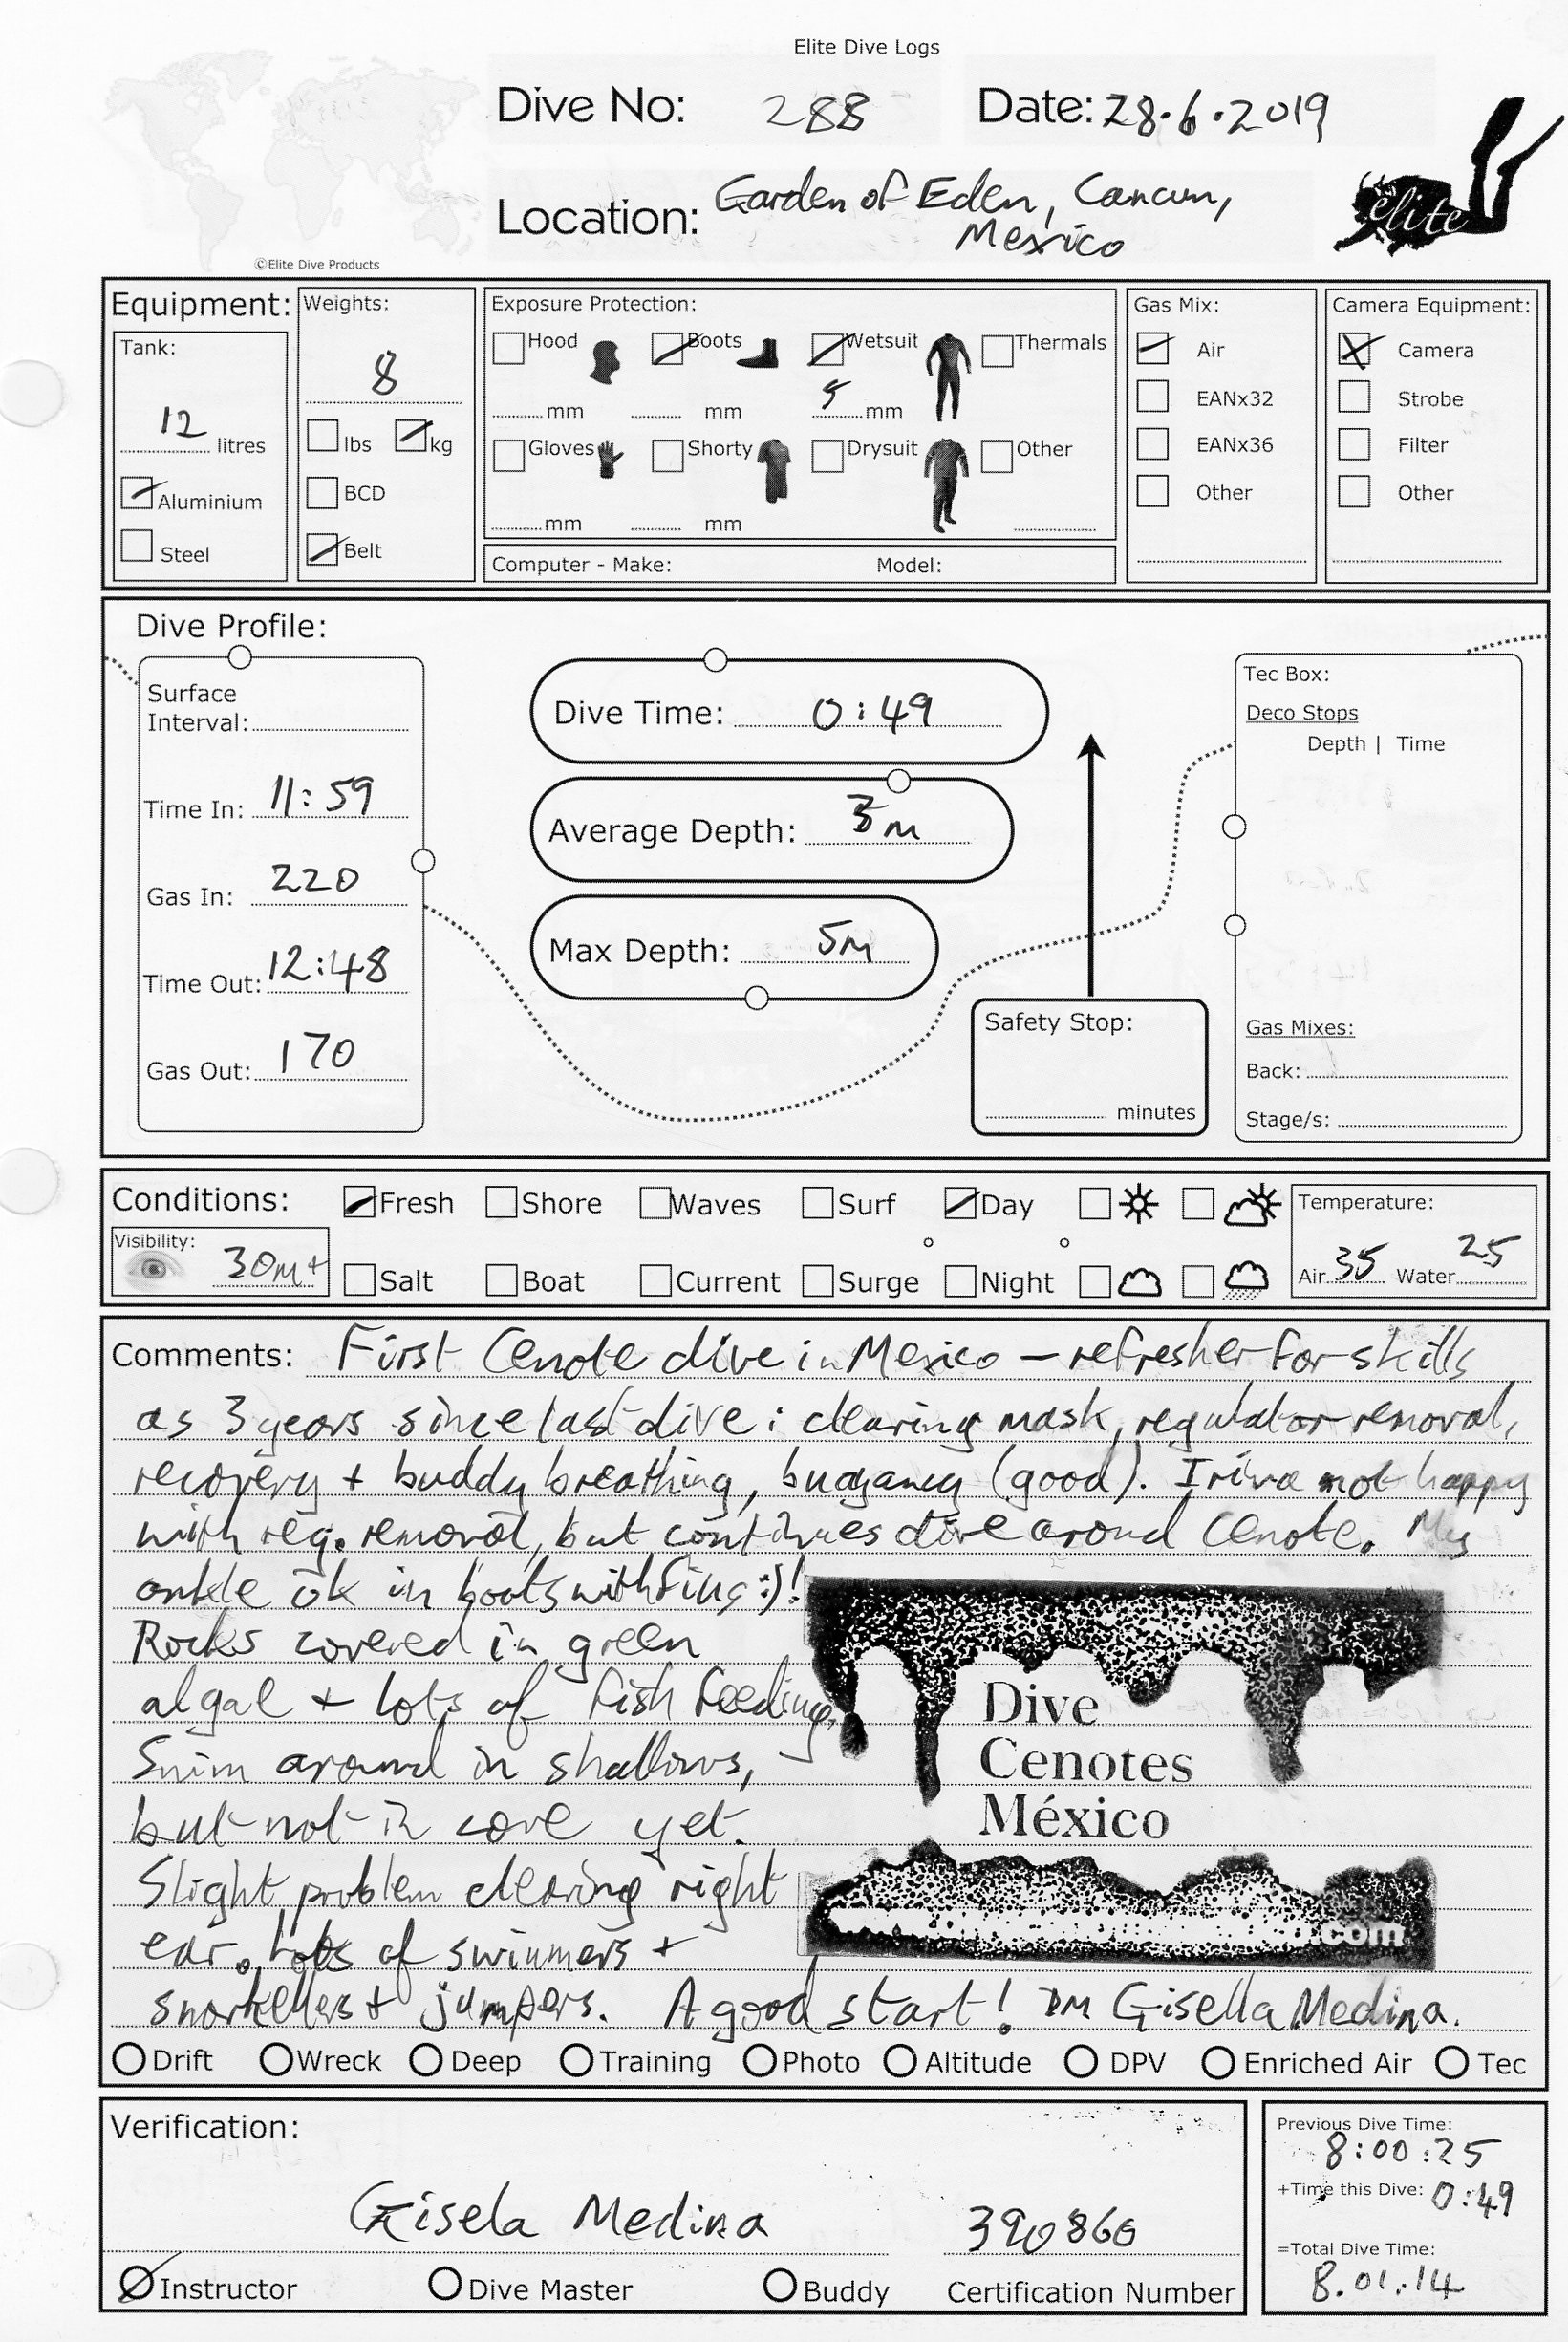 Elite Dive Logs
Dive No: 288 Date: 28.6.2019
Location: Garden of Eden, Cancun,
Mexico
elite
©Elite Dive Products
Equipment: Weights: Exposure Protection: Gas Mix: Camera Equipment:
Tank: 8 Hood Boots Wetsuit Thermals Air Camera
12 litres mm mm 5 mm EANx32 Strobe
lbs kg Gloves Shorty Drysuit Other EANx36 Filter
Aluminium BCD mm mm Other Other
Steel Belt Computer - Make: Model:
Dive Profile:
Surface
Interval:
Time In: 11:59
Gas In: 220
Time Out: 12:48
Gas Out: 170
Dive Time: 0:49
Average Depth: 3m
Max Depth: 5m
Safety Stop:
minutes
Tec Box:
Deco Stops
Depth | Time
Gas Mixes:
Back:
Stage/s:
Conditions: Fresh Shore Waves Surf Day Temperature:
Visibility: 30m+ Salt Boat Current Surge Night Air 35 Water 25
Comments: First Cenote dive in Mexico - refresher for skills
as 3 years since last dive: clearing mask, regulator removal,
recovery + buddy breathing, buoyancy (good). Irina not happy
with reg. removal, but continues dive around Cenote. My
ankle ok in boots with fins :)!
Rocks covered in green
algae + lots of fish feeding.
Swim around in shallows,
but not in cave yet.
Slight problem clearing right
ear. Lots of swimmers +
snorkellers + jumpers. A good start! DM Gisella Medina.
Dive
Cenotes
México
.com
Drift Wreck Deep Training Photo Altitude DPV Enriched Air Tec
Verification:
Gisela Medina 390860
Instructor Dive Master Buddy Certification Number
Previous Dive Time:
8:00:25
+Time this Dive: 0:49
=Total Dive Time:
8.01.14